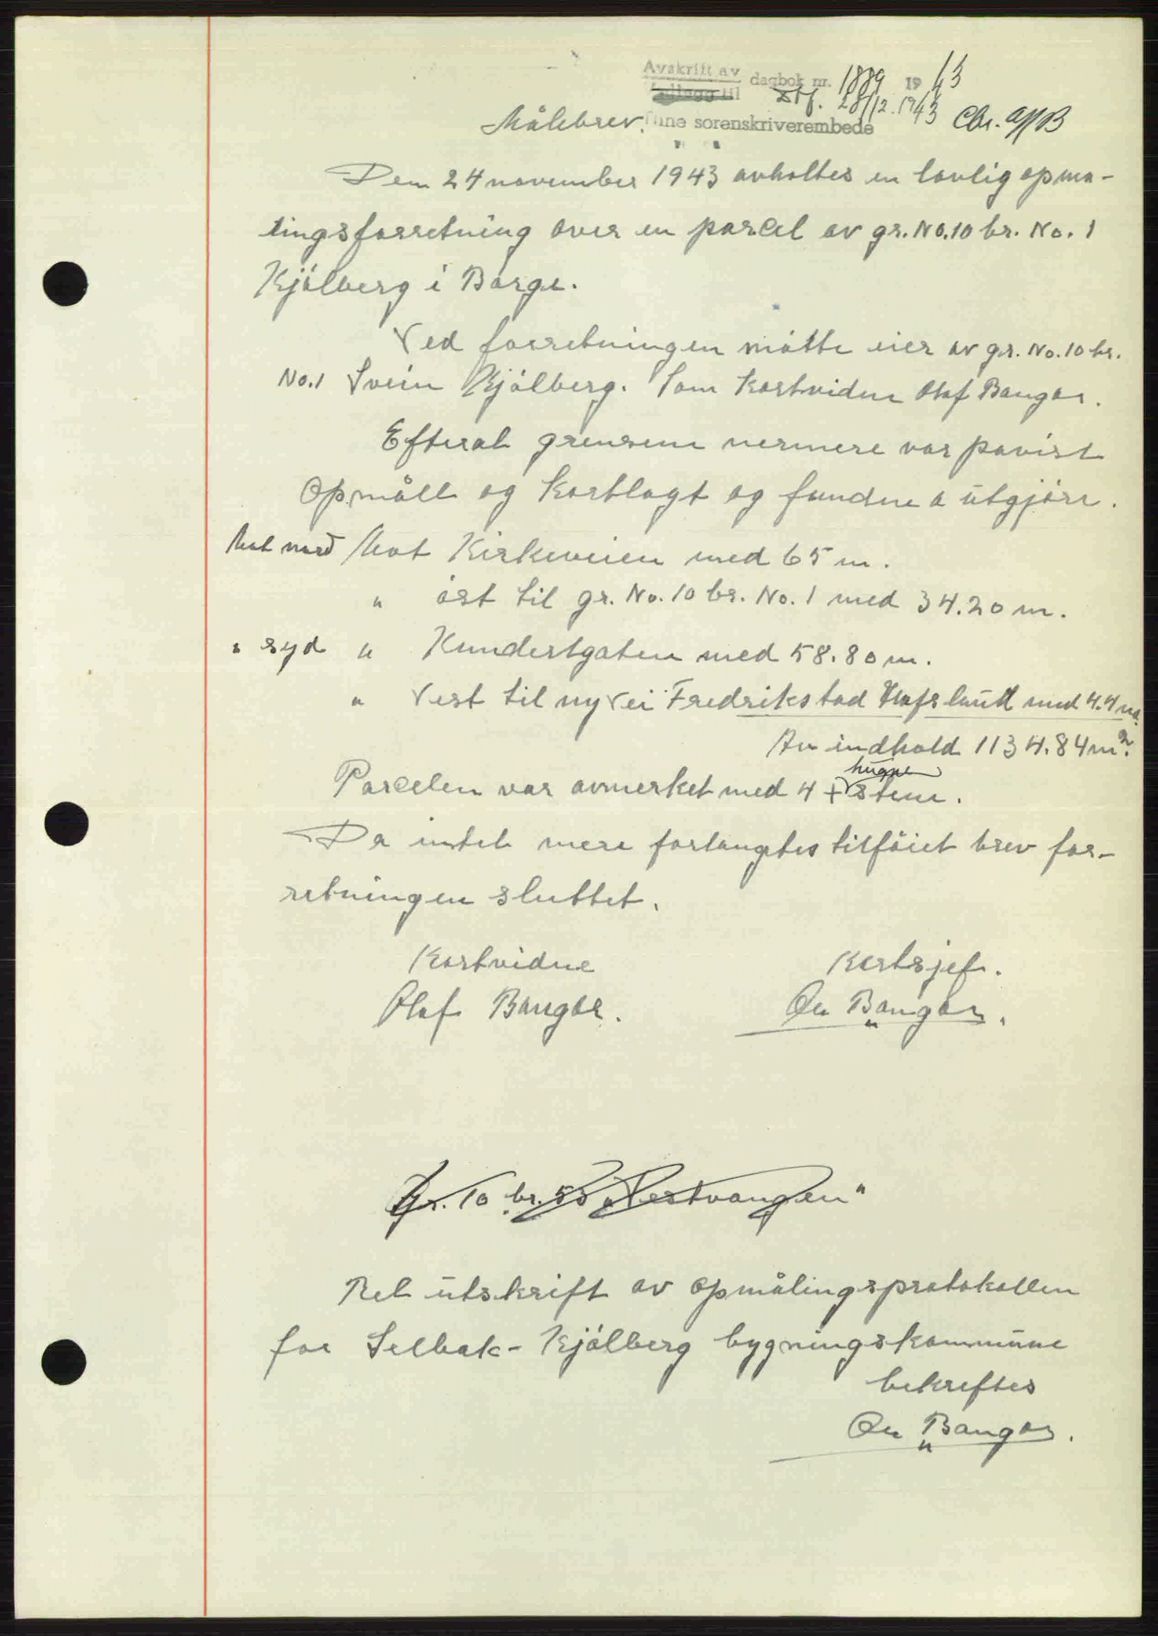 Avskrift av dagbok nr. 1889 1943
Målebrev. Tune sorenskriverembede 28/12.1943 Chr. App B
Den 24 november 1943 avholtes en lovlig opma-
lingsforretning over en parcel av gr. No. 10 br. No. 1
Kjølberg i Borge.
Ved forretningen møtte eier av gr. No. 10 br.
No. 1 Svein Kjølberg. Som Kartvidne Olaf Bangor.
Efterat grensene nermere var pavist
opmålt og Kartlagt og fundne a utgjøre.
Mot nord Mot Kirkeveien med 65 m.
" øst til gr. No. 10 br. No. 1 med 34.20 m.
" syd " Kundestgaten med 58.80 m.
" Vest til ny vei Fredrikstad Hafslund med 4.4 m.
An indhold 1134.84 m².
Parcelen var avmerket med 4 + hugne stene.
Da intet mere forlangtes tilføiet brev for-
retningen sluttet.
Kartvidne Kartsjef.
Olaf Bangor. Ou Bangor.
Gr. 10 br. 55 "Vestvangen"
Ret utskrift av opmålingsprotokollen
for Selbak-Kjølberg bygningskommune
bekreftes
Ou Bangor.